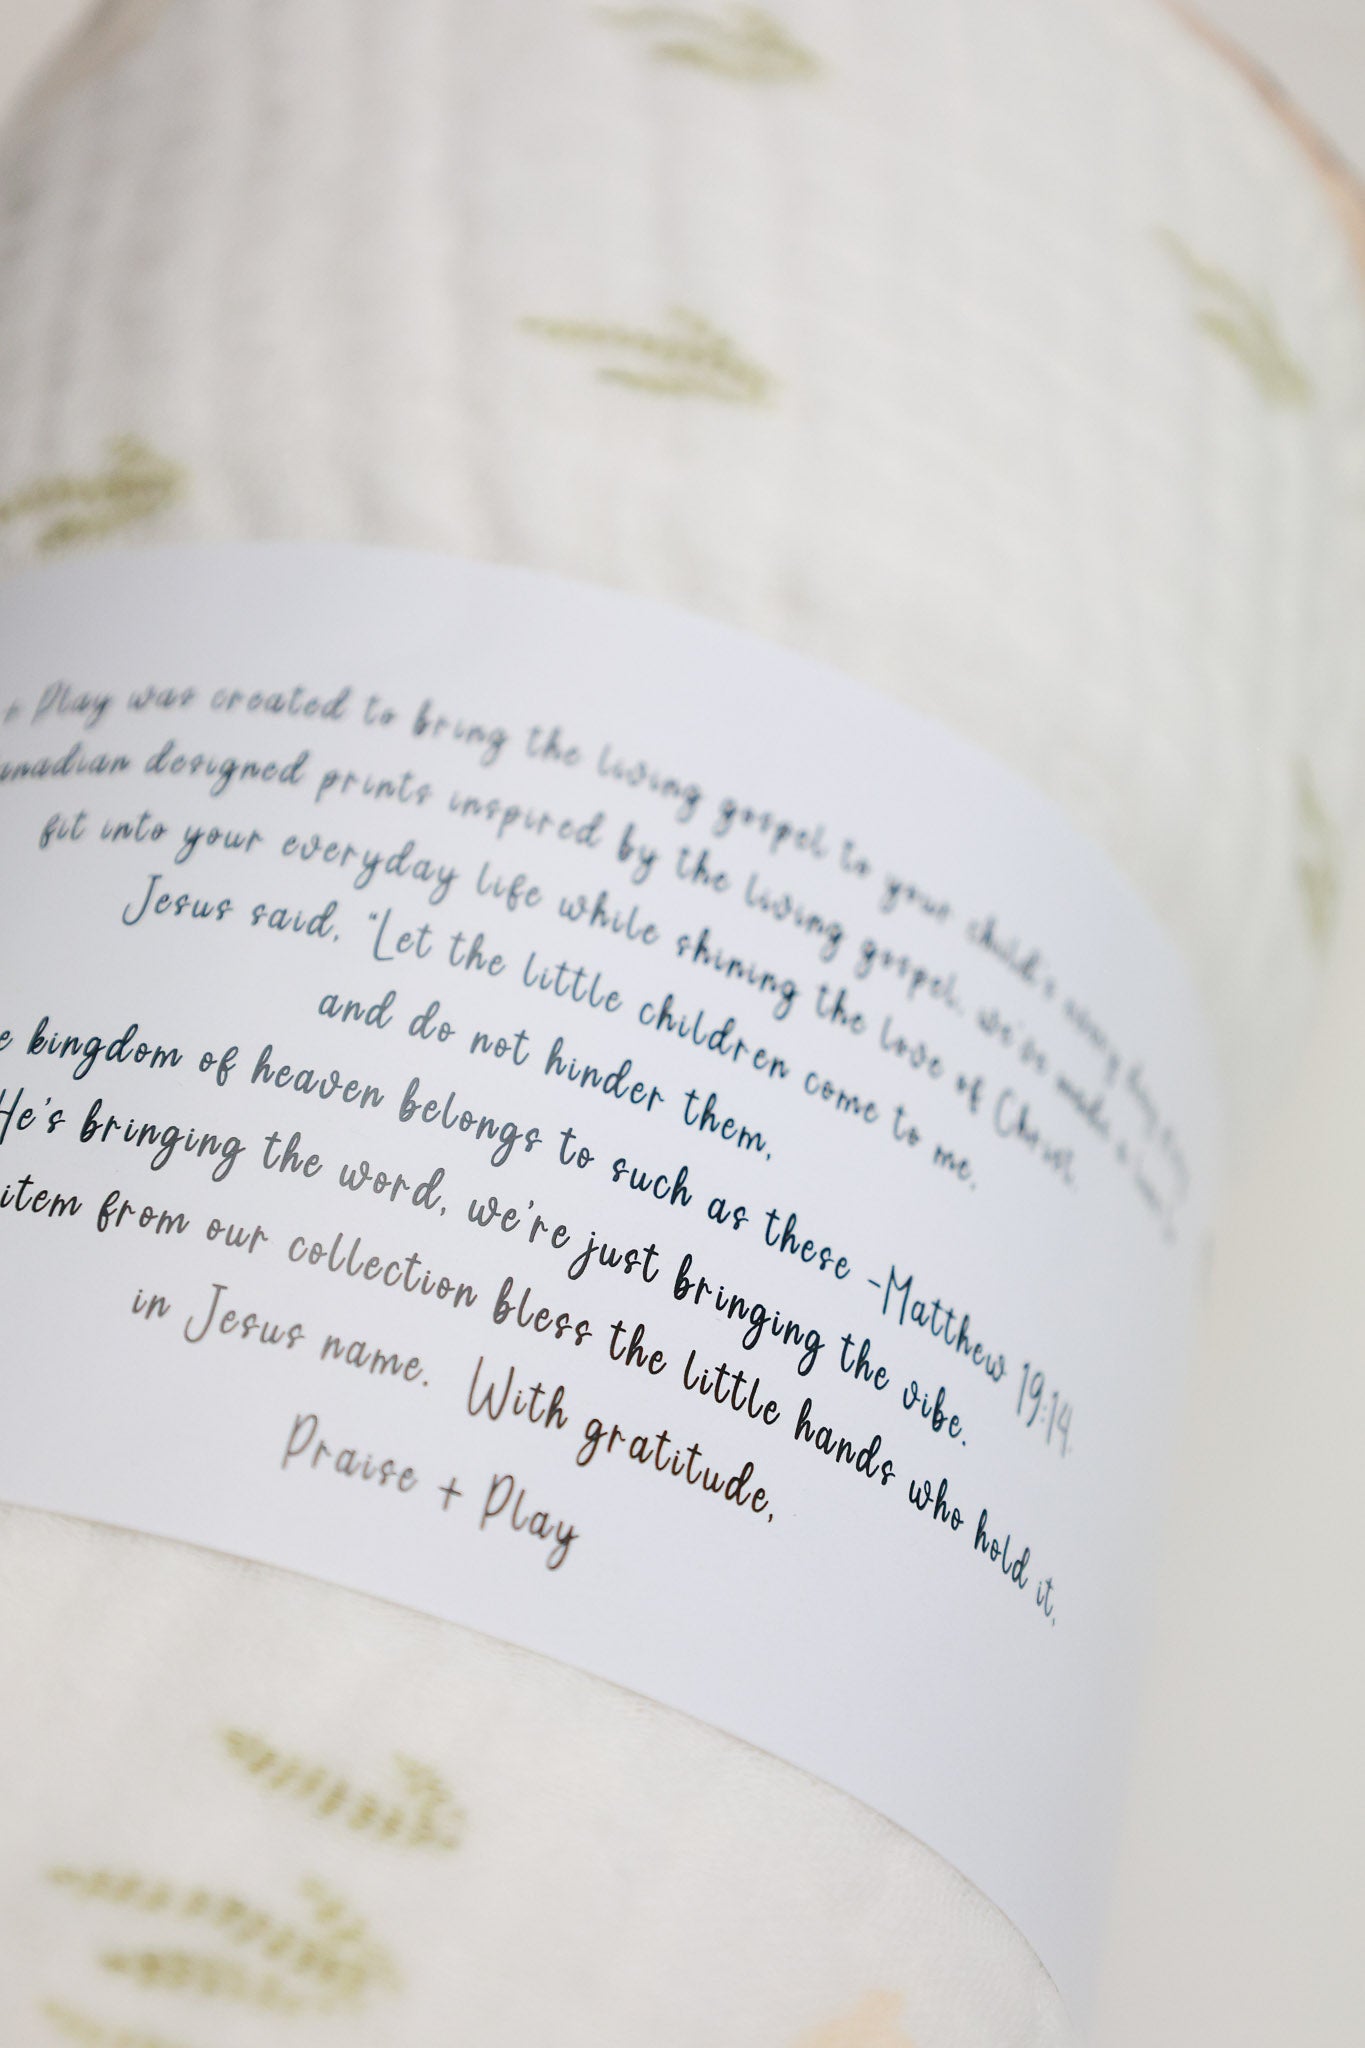 + Play was created to bring the living gospel to your child's every day
Canadian designed prints inspired by the living gospel, we've made
fit into your everyday life while shining the love of Christ.
Jesus said, "Let the little children come to me,
and do not hinder them,
kingdom of heaven belongs to such as these -Matthew 19:14.
He's bringing the word, we're just bringing the vibe.
item from our collection bless the little hands who hold it,
in Jesus name. With gratitude,
Praise + Play